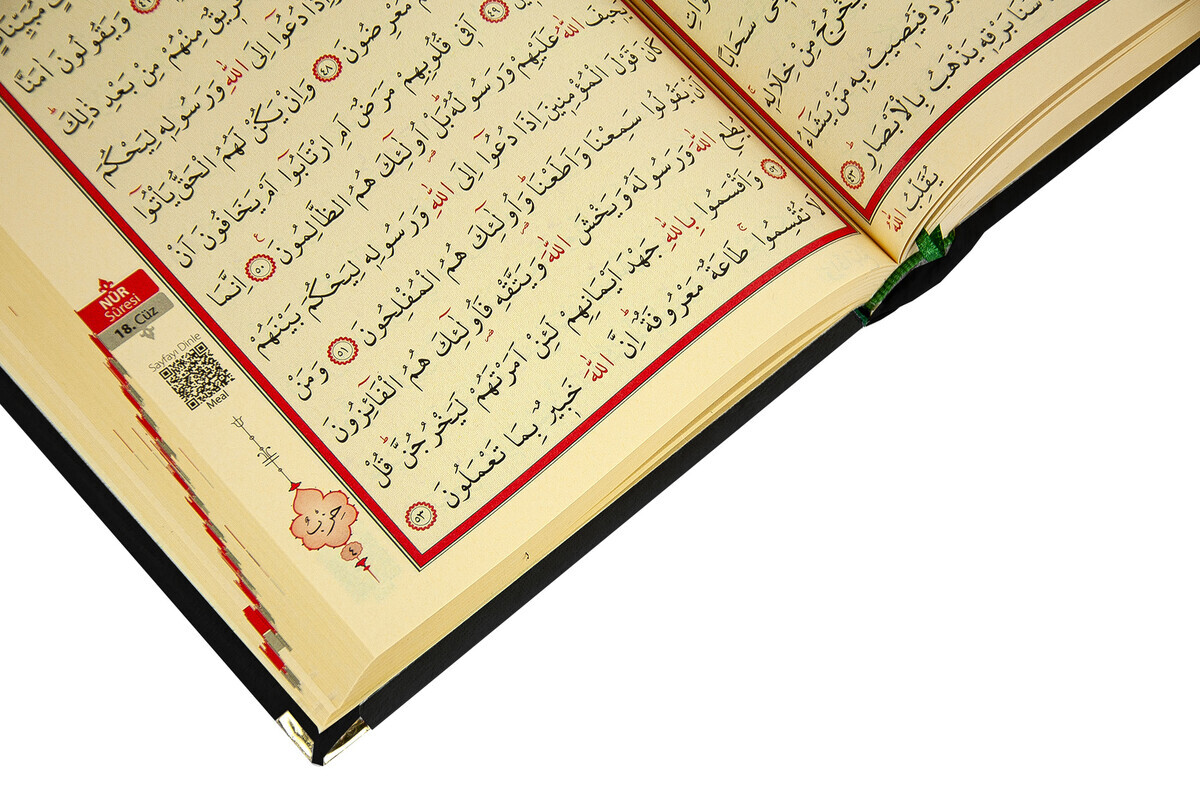 سَحَابًا
يَخْرُجُ مِنْ خِلَالِهٖ
فَيُصٖيبُ بِهٖ مَنْ يَشَٓاءُ
سَنَا بَرْقِهٖ يَذْهَبُ بِالْاَبْصَارِ ﴿٤٣﴾
يُقَلِّبُ اللّٰهُ
وَيَقُولُونَ اٰمَنَّا
فَرٖيقٌ مِنْهُمْ مِنْ بَعْدِ ذٰلِكَ
وَاِذَا دُعُٓوا اِلَى اللّٰهِ وَرَسُولِهٖ لِيَحْكُمَ
مُعْرِضُونَ ﴿٤٨﴾ وَاِنْ يَكُنْ لَهُمُ الْحَقُّ يَأْتُٓوا
﴿٤٩﴾ اَفٖي قُلُوبِهِمْ مَرَضٌ اَمِ ارْتَابُٓوا اَمْ يَخَافُونَ اَنْ
يَحٖيفَ اللّٰهُ عَلَيْهِمْ وَرَسُولُهُ بَلْ اُولٰٓئِكَ هُمُ الظَّالِمُونَ ﴿٥٠﴾ اِنَّمَا
كَانَ قَوْلَ الْمُؤْمِنٖينَ اِذَا دُعُٓوا اِلَى اللّٰهِ وَرَسُولِهٖ لِيَحْكُمَ بَيْنَهُمْ
اَنْ يَقُولُوا سَمِعْنَا وَاَطَعْنَا وَاُولٰٓئِكَ هُمُ الْمُفْلِحُونَ ﴿٥١﴾ وَمَنْ
يُطِعِ اللّٰهَ وَرَسُولَهُ وَيَخْشَ اللّٰهَ وَيَتَّقْهِ فَاُولٰٓئِكَ هُمُ الْفَٓائِزُونَ
﴿٥٢﴾ وَاَقْسَمُوا بِاللّٰهِ جَهْدَ اَيْمَانِهِمْ لَئِنْ اَمَرْتَهُمْ لَيَخْرُجُنَّ قُلْ
لَا تُقْسِمُوا طَاعَةٌ مَعْرُوفَةٌ اِنَّ اللّٰهَ خَبٖيرٌ بِمَا تَعْمَلُونَ ﴿٥٣﴾
NÛR
Sûresi
18. Cüz
Sayfayı Dinle
Meal
حِزْبٌ
٤